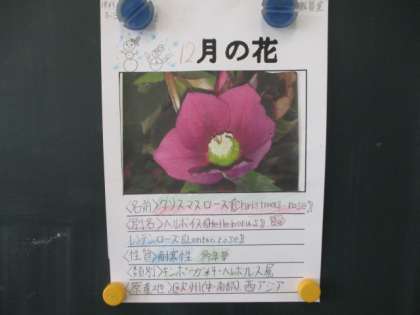 12月の花
<名前>クリスマスローズ【Christmas rose】
<別名>ヘルボルス【Helleborus】
レンテンローズ【Lenten rose】
<性質>耐寒性 多年草
<類別>キンポウゲ科・ヘルボルス属
<原産地>欧州(中・南部)、西アジア